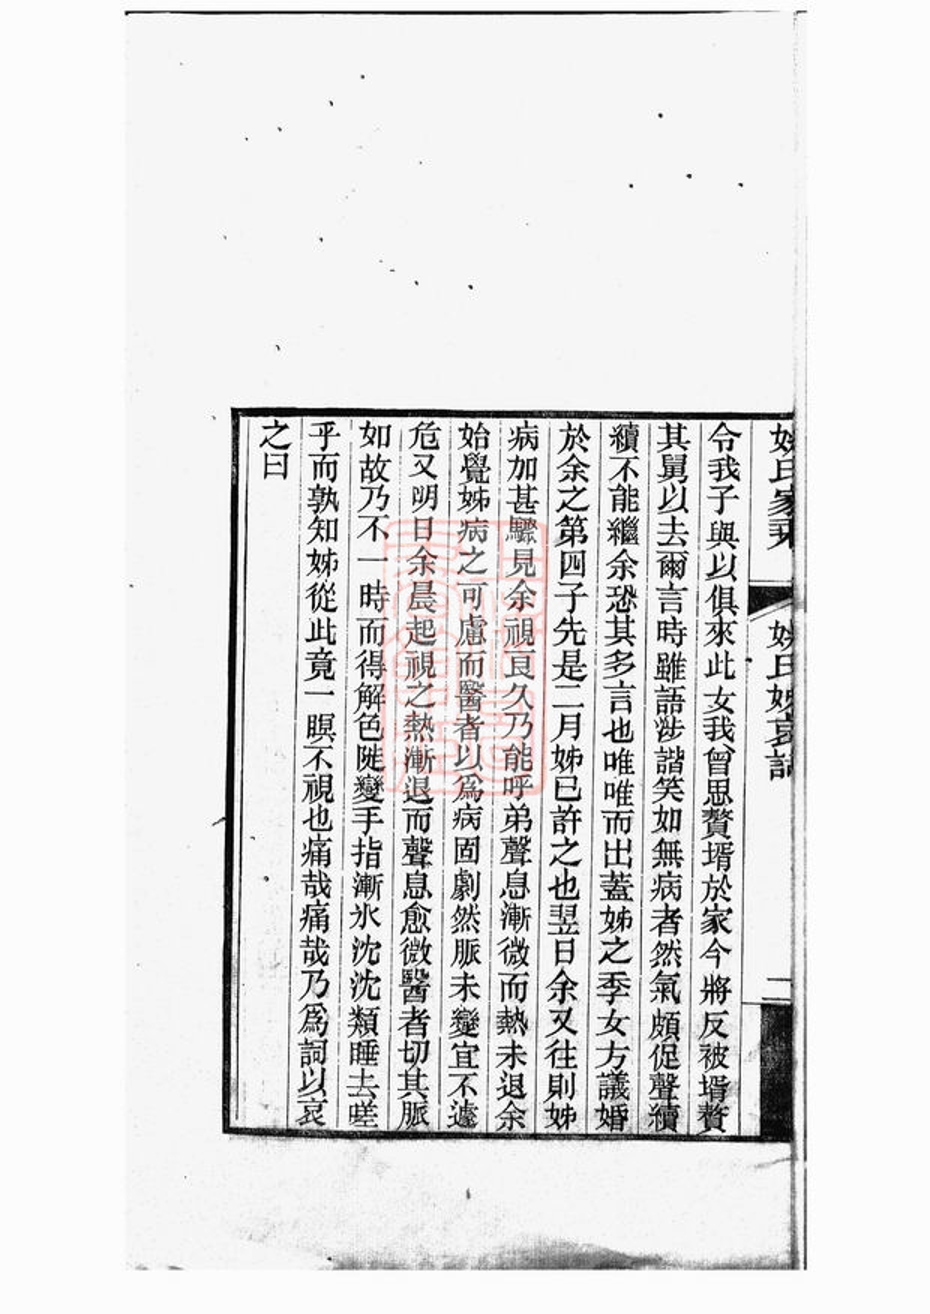 姚氏家乘 姚氏姊哀詞 二
令我子與以俱來此女我曾思贅壻於家今將反被壻贅
其舅以去爾言時雖語涉諧笑如無病者然氣頗促聲續
續不能繼余恐其多言也唯唯而出蓋姊之季女方議婚
於余之第四子先是二月姊已許之也翌日余又往則姊
病加甚驟見余視良久乃能呼弟聲息漸微而熱未退余
始覺姊病之可慮而醫者以爲病固劇然脈未變宜不遽
危又明日余晨起視之熱漸退而聲息愈微醫者切其脈
如故乃不一時而得解色陡變手指漸氷沈沈類睡去嗟
乎而孰知姊從此竟一瞑不視也痛哉痛哉乃爲詞以哀
之曰